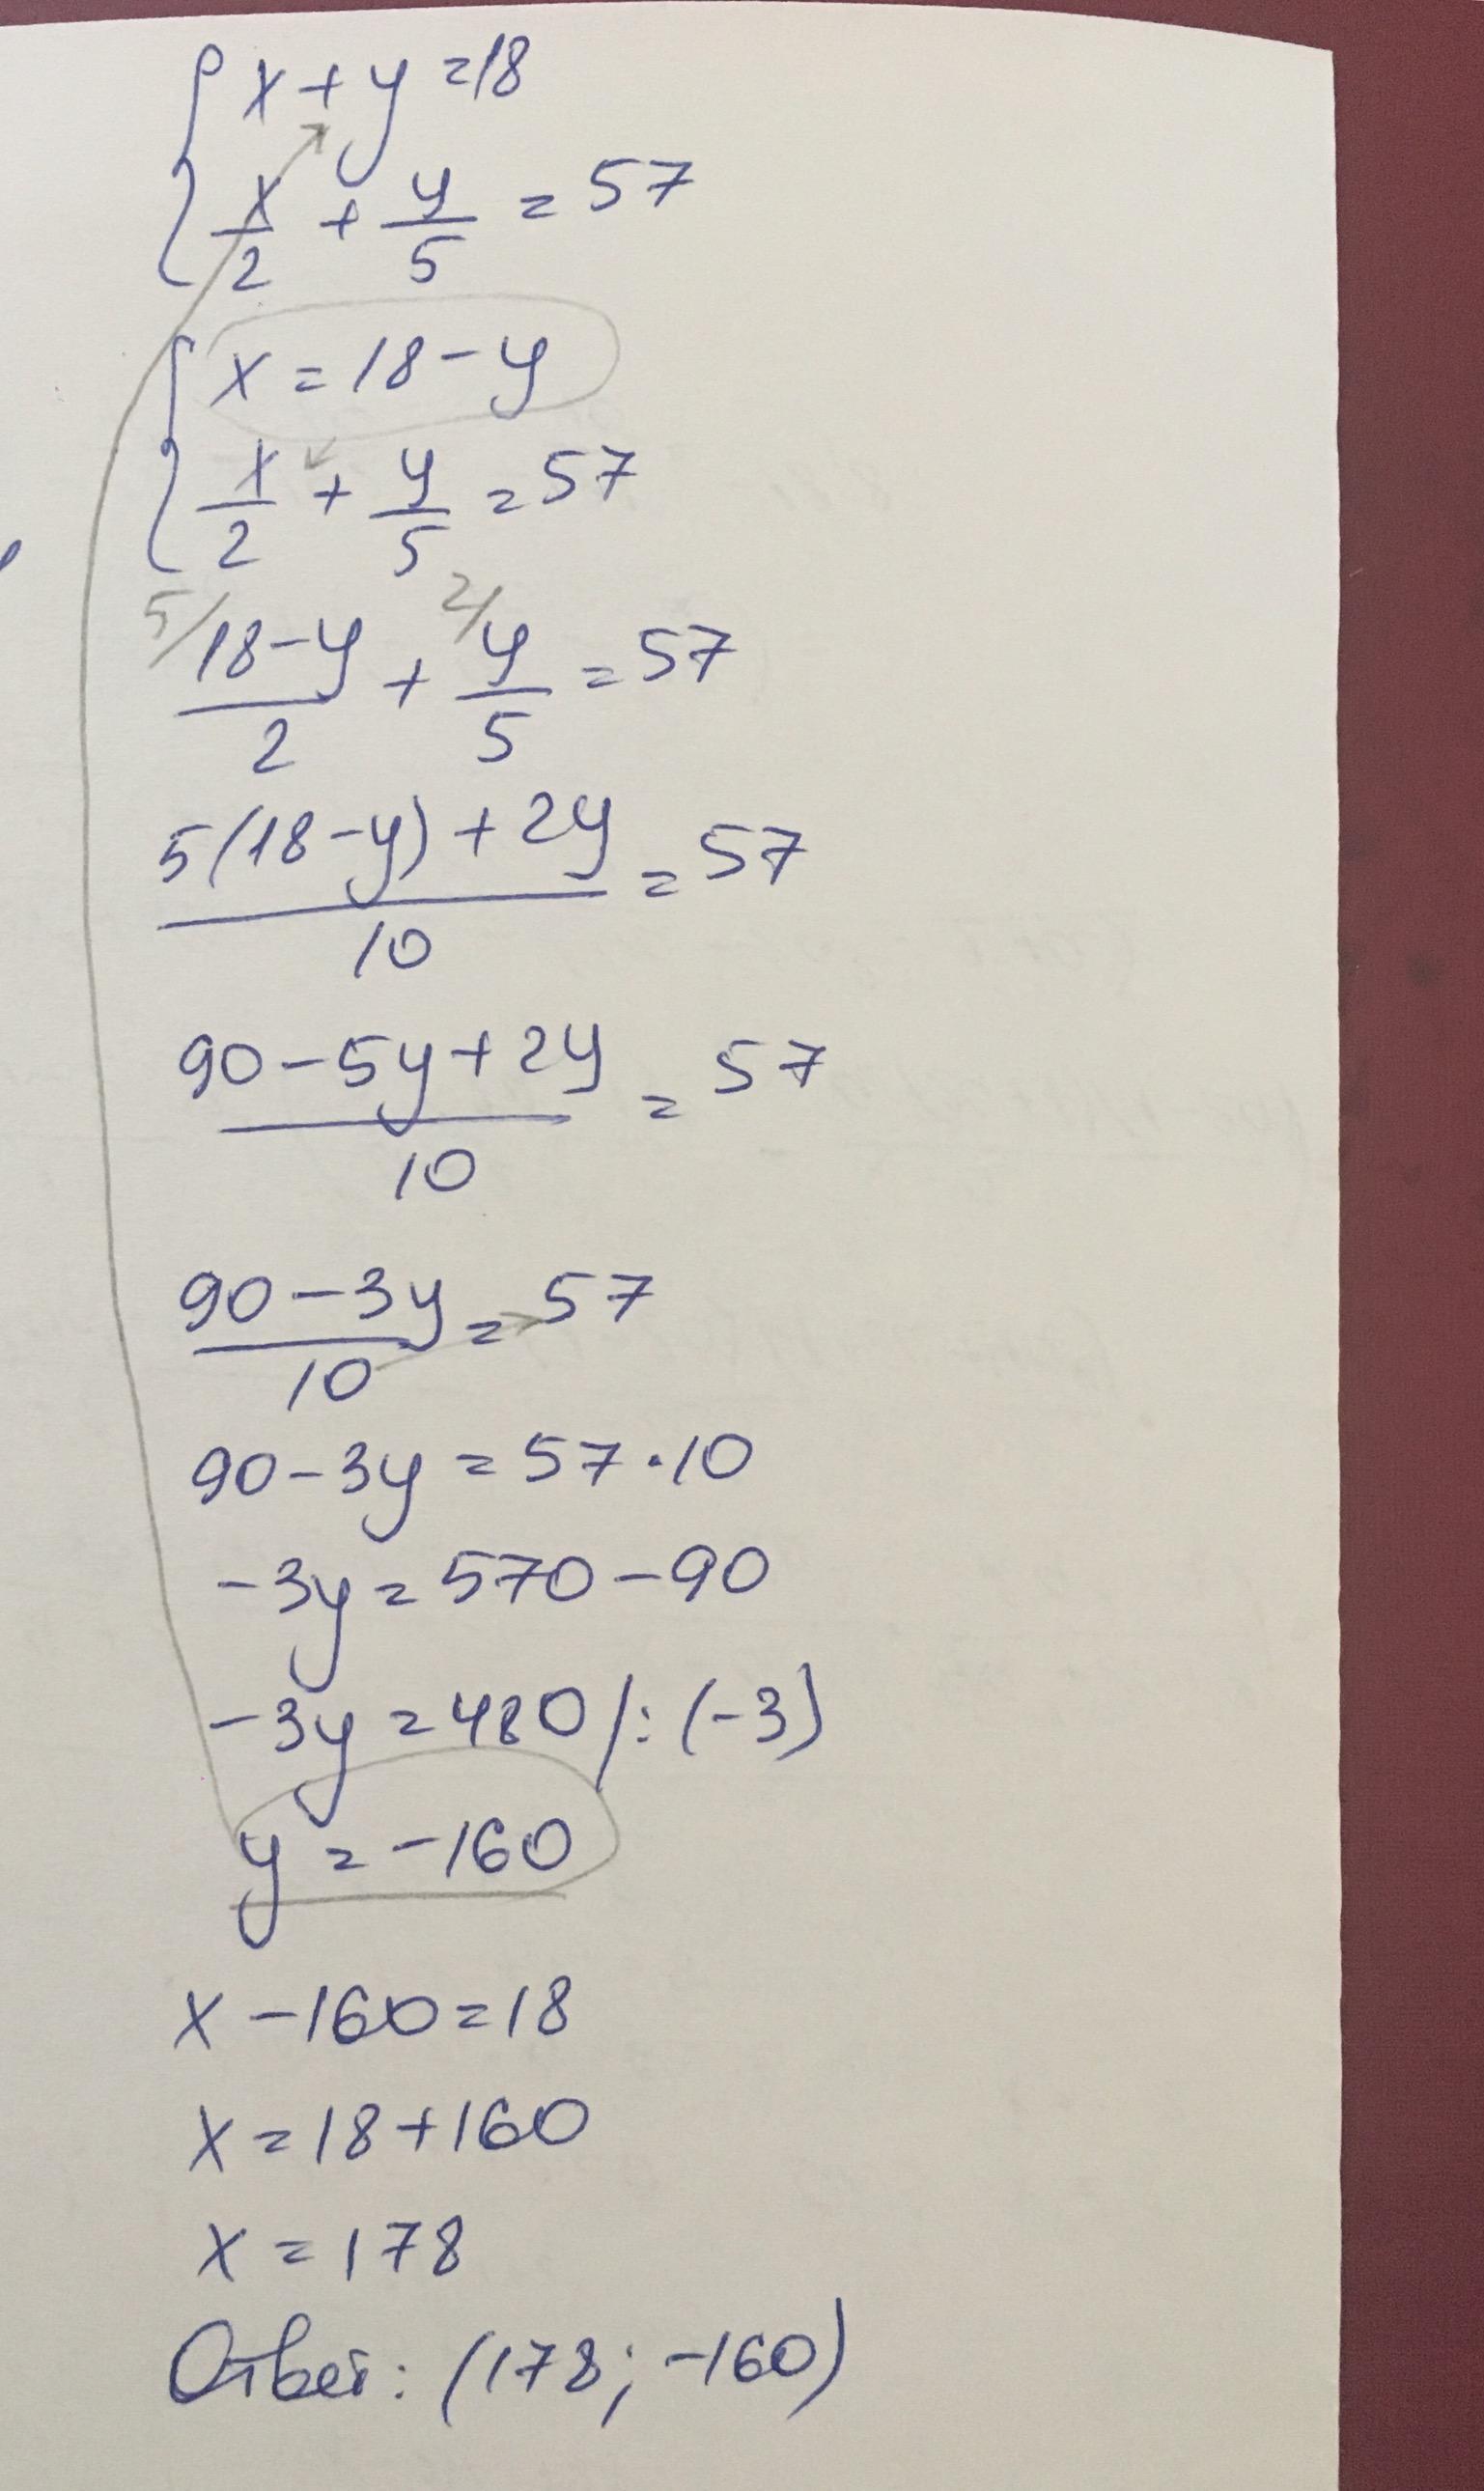 x + y = 18
x/2 + y/5 = 57
x = 18 - y
x/2 + y/5 = 57
5/ (18-y)/2 + 2/ y/5 = 57
(5(18-y) + 2y)/10 = 57
(90 - 5y + 2y)/10 = 57
(90 - 3y)/10 = 57
90 - 3y = 57 · 10
-3y = 570 - 90
-3y = 480 /: (-3)
y = -160
x - 160 = 18
x = 18 + 160
x = 178
Ответ: (178; -160)